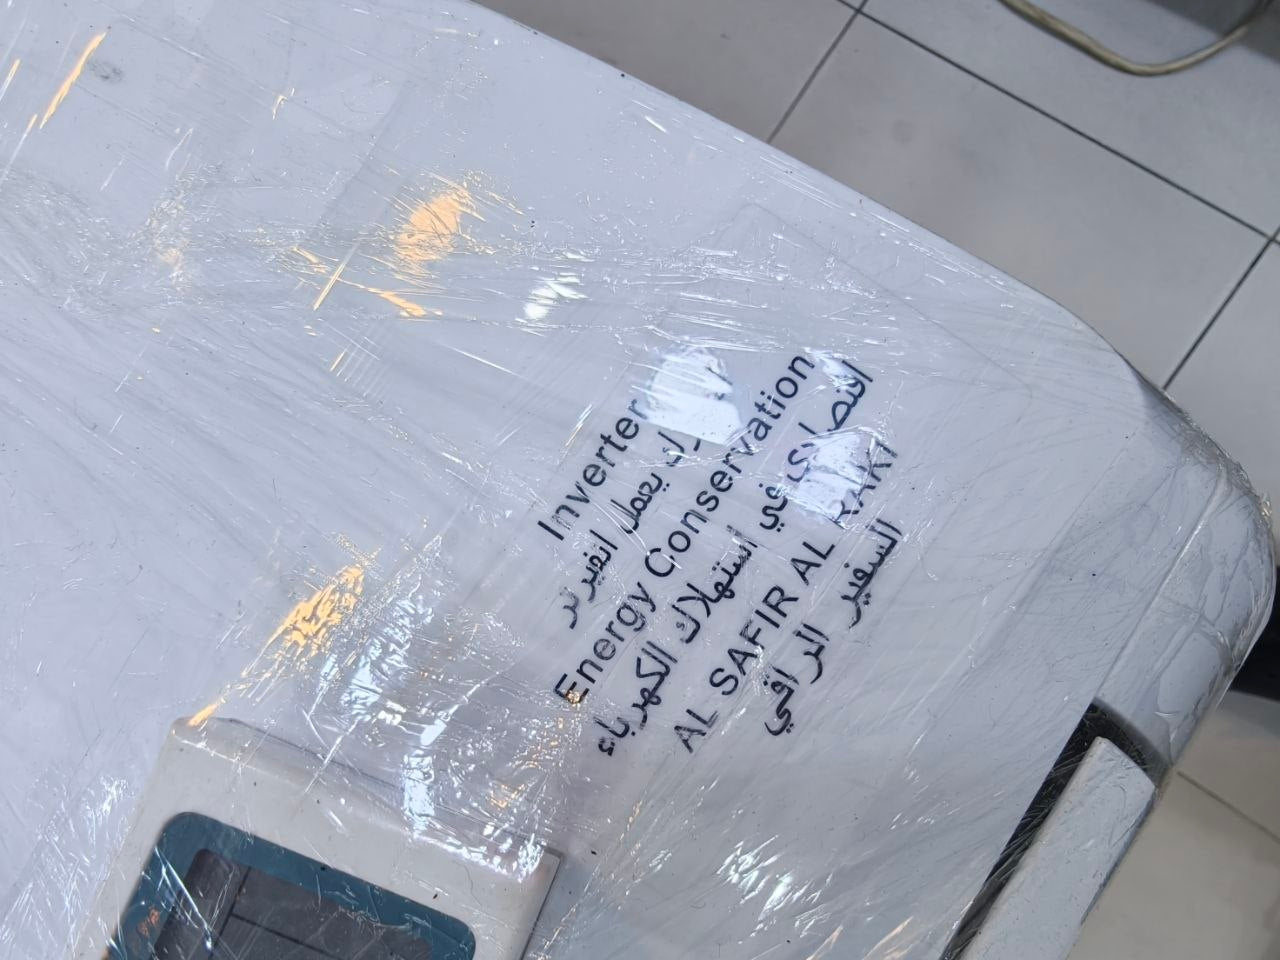 Inverter
يعمل انفيرتر
Energy Conservation
اقتصادي في استهلاك الكهرباء
AL SAFIR AL RAKI
السفير الراقي